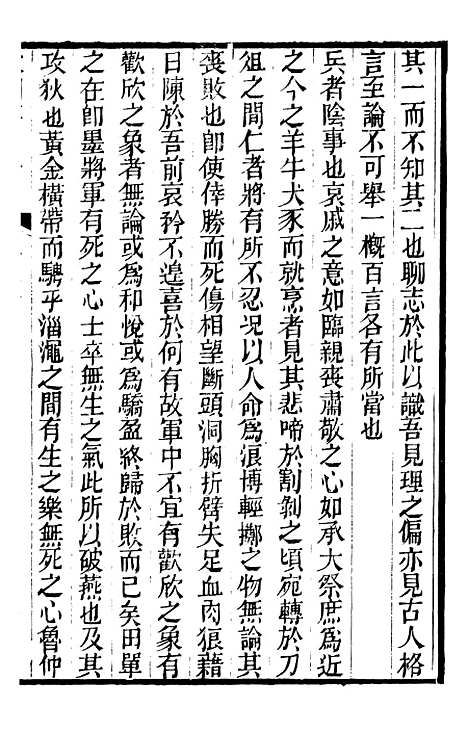 其一而不知其二也聊志於此以識吾見理之偏亦見古人格
言至論不可舉一槪百言各有所當也
兵者陰事也哀戚之意如臨親喪肅敬之心如承大祭庶爲近
之今之羊牛犬豕而就烹者見其悲啼於割剝之頃宛轉於刀
俎之間仁者將有所不忍況以人命爲浪博輕擲之物無論其
喪敗也卽使倖勝而死傷相望斷頭洞胸折臂失足血肉狼藉
日陳於吾前哀矜不遑喜於何有故軍中不宜有歡欣之象有
歡欣之象者無論或爲和悅或爲驕盈終歸於敗而已矣田單
之在卽墨將軍有死之心士卒無生之氣此所以破燕也及其
攻狄也黃金橫帶而騁乎淄澠之間有生之樂無死之心魯仲